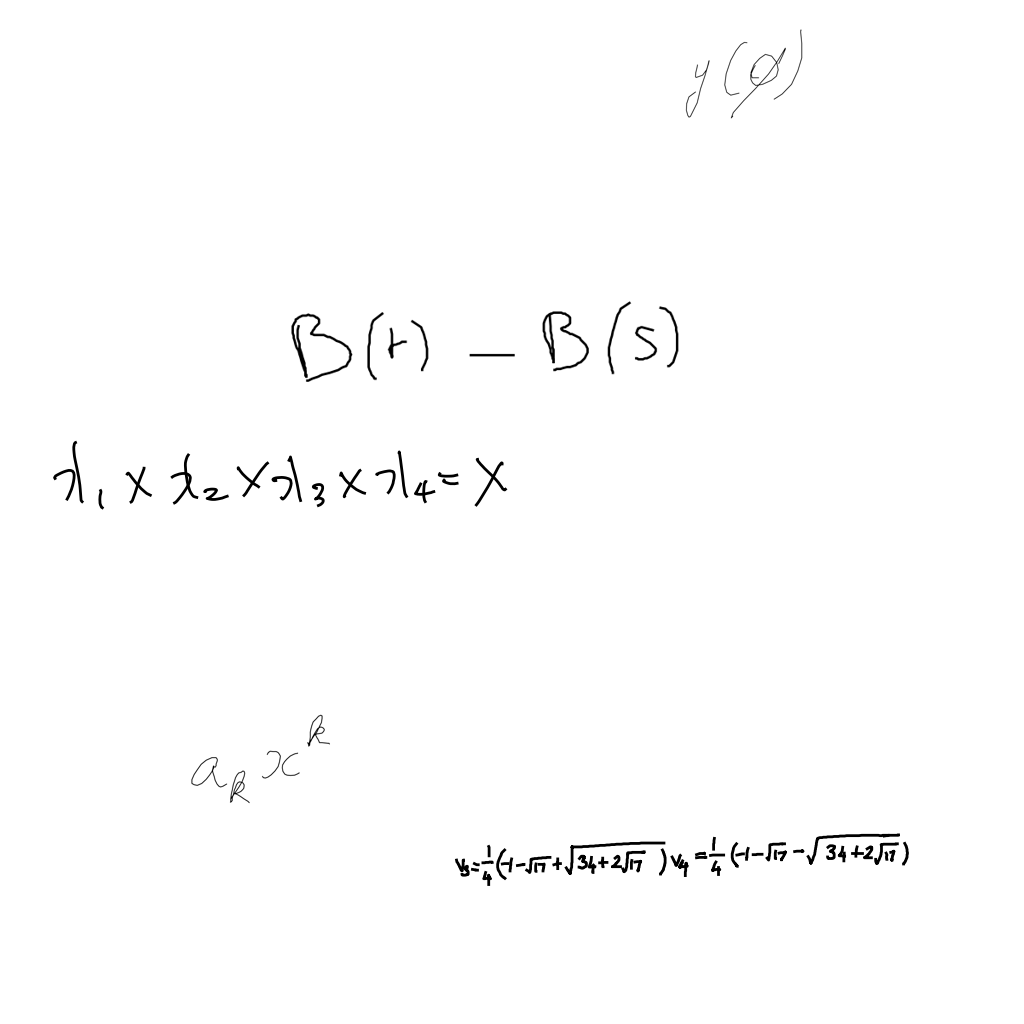 y(ϕ)
B(t) - B(s)
x₁ × x₂ × x₃ × x₄ = X
aₖxᵏ
v₃=¼(-1-√17+√(34+2√17)) v₄=¼(-1-√17-√(34+2√17))